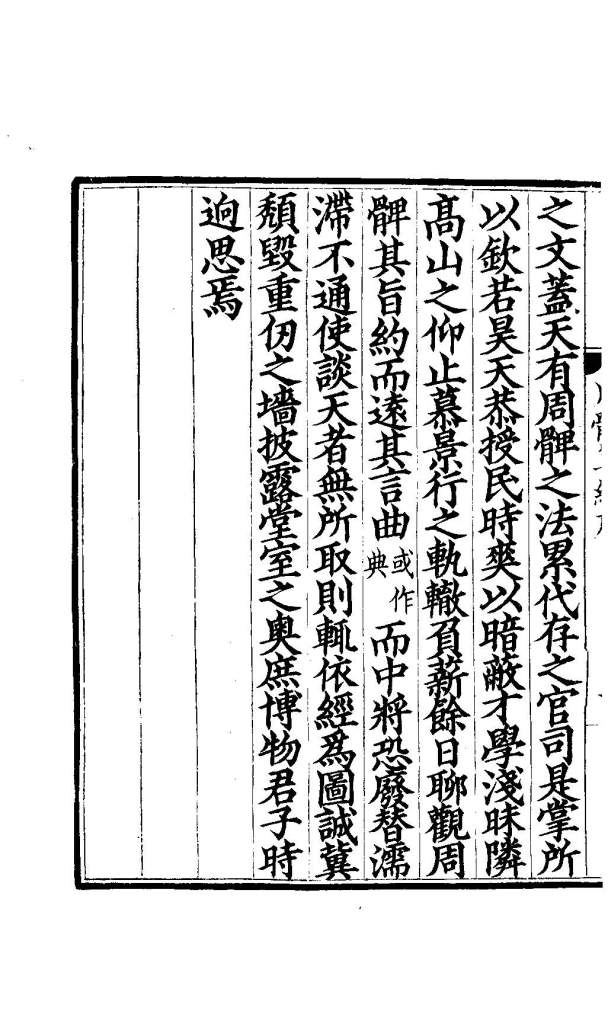 之文蓋天有周髀之法累代存之官司是掌所
以欽若昊天恭授民時爽以暗蔽才學淺昧隣
髙山之仰止慕景行之軌轍負薪餘日聊觀周
髀其旨約而遠其言曲或作典而中將恐廢替濡
滯不通使談天者無所取則輒依經爲圖誠冀
頽毀重仞之墻披露堂室之奥庶博物君子時
逈思焉